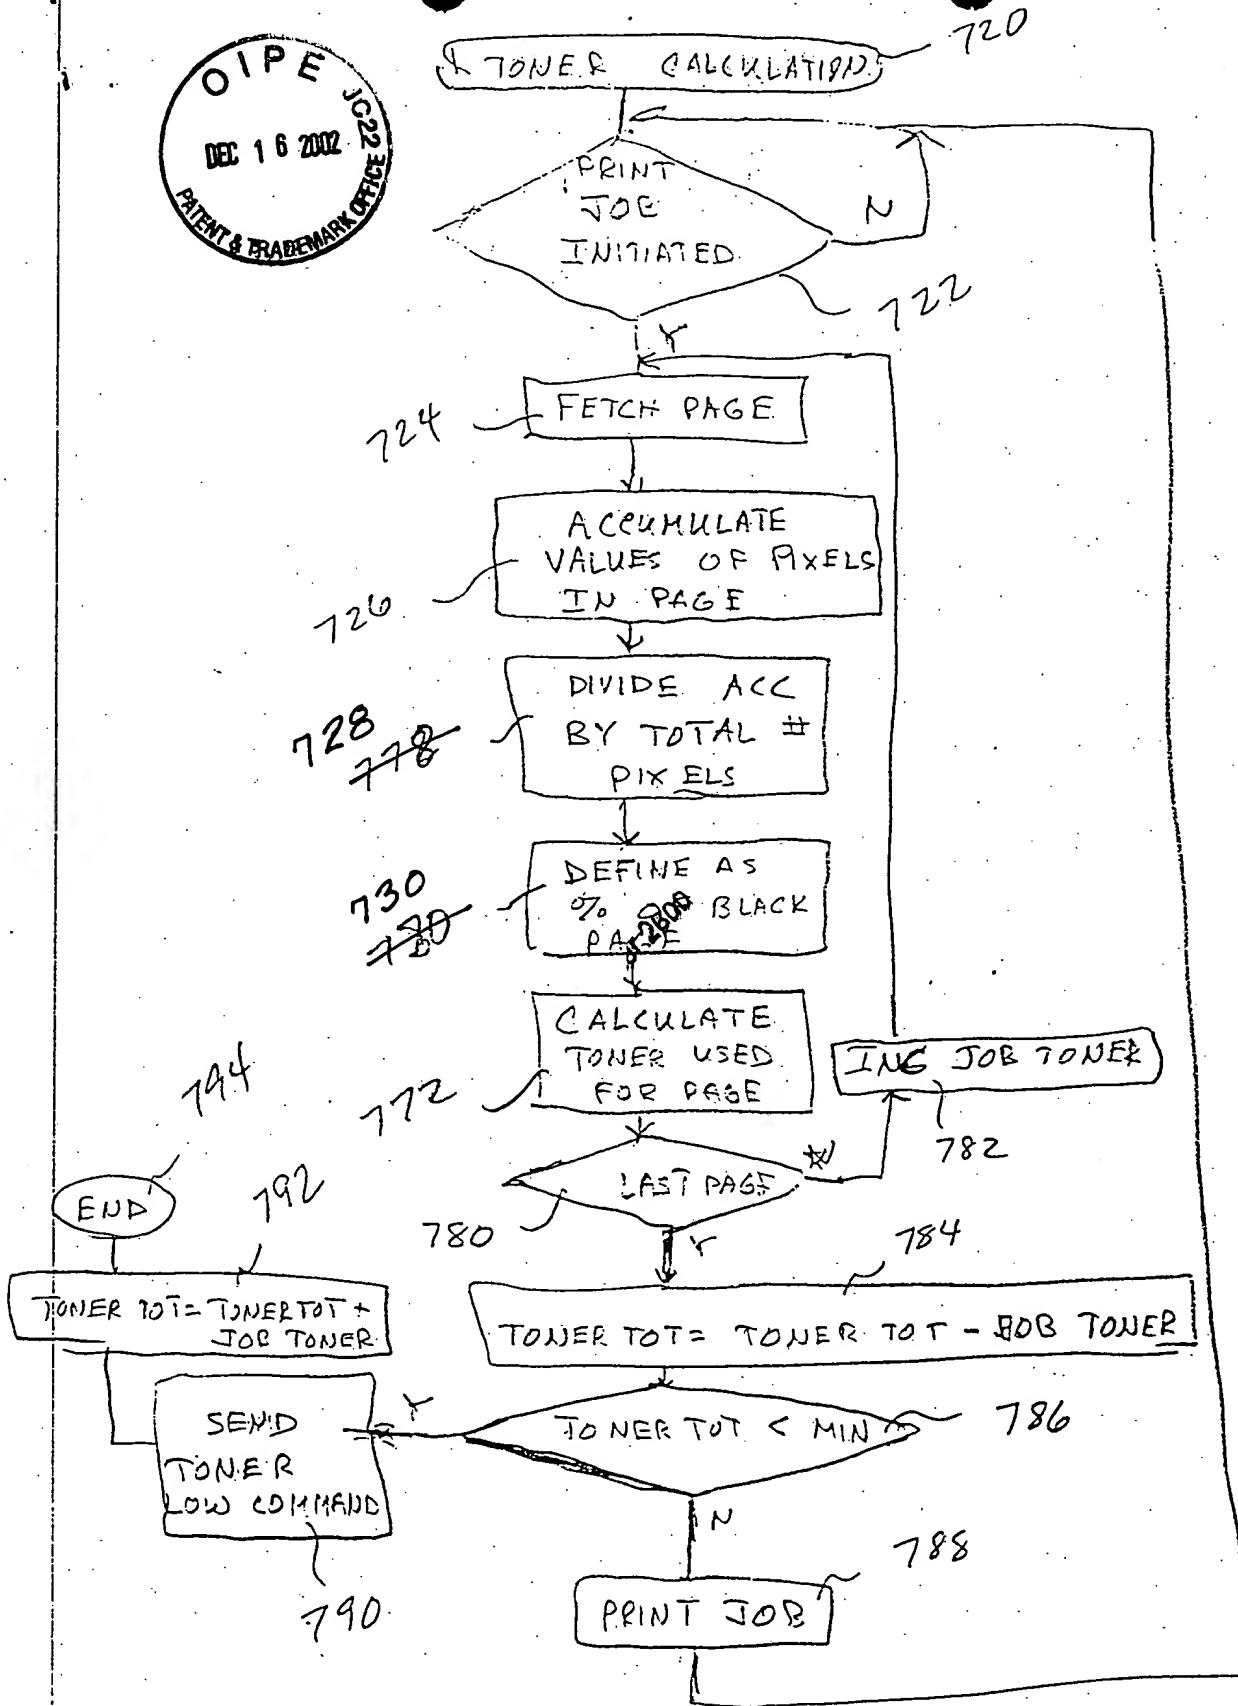 OIPE JC22
DEC 16 2002
PATENT & TRADEMARK OFFICE
TONER CALCULATION
720
PRINT
JOB
INITIATED
N
722
Y
FETCH PAGE
724
ACCUMULATE
VALUES OF PIXELS
IN PAGE
726
DIVIDE ACC
BY TOTAL #
PIXELS
728
778
DEFINE AS
% BLACK
PAGE
730
780
CALCULATE
TONER USED
FOR PAGE
772
INC JOB TONER
782
LAST PAGE
N
780
Y
794
END
792
784
TONER TOT = TONER TOT +
JOB TONER
TONER TOT = TONER TOT - JOB TONER
TONER TOT < MIN
786
Y
SEND
TONER
LOW COMMAND
790
N
788
PRINT JOB